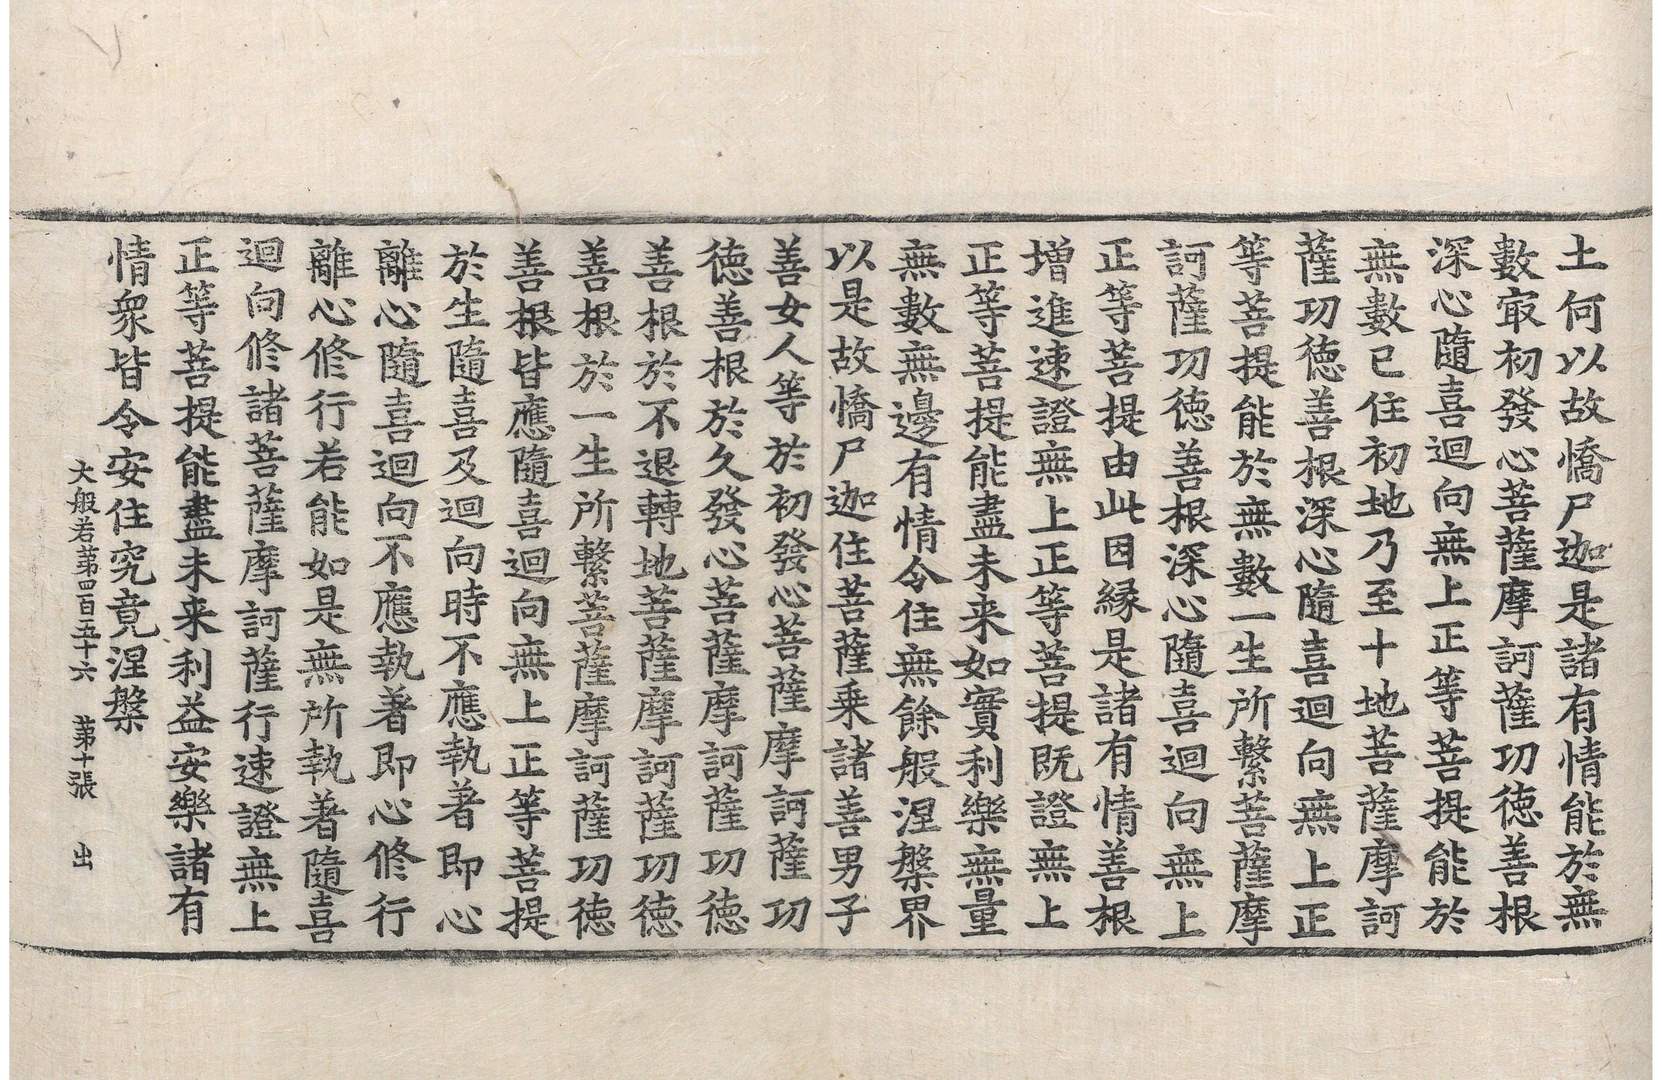 土何以故憍尸迦是諸有情能於無
數㝡初發心菩薩摩訶薩功徳善根
深心隨喜迴向無上正等菩提能於
無數已住初地乃至十地菩薩摩訶
薩功徳善根深心隨喜迴向無上正
等菩提能於無數一生所繫菩薩摩
訶薩功徳善根深心隨喜迴向無上
正等菩提由此因縁是諸有情善根
增進速證無上正等菩提既證無上
正等菩提能盡未来如實利樂無量
無數無邊有情令住無餘般涅槃界
以是故憍尸迦住菩薩乗諸善男子
善女人等於初發心菩薩摩訶薩功
徳善根於久發心菩薩摩訶薩功徳
善根於不退轉地菩薩摩訶薩功徳
善根於一生所繫菩薩摩訶薩功徳
善根皆應隨喜迴向無上正等菩提
於生隨喜及迴向時不應執著即心
離心隨喜迴向不應執著即心修行
離心修行若能如是無所執著隨喜
迴向修諸菩薩摩訶薩行速證無上
正等菩提能盡未来利益安樂諸有
情衆皆令安住究竟涅槃
大般若苐四百五十六 苐十張 出